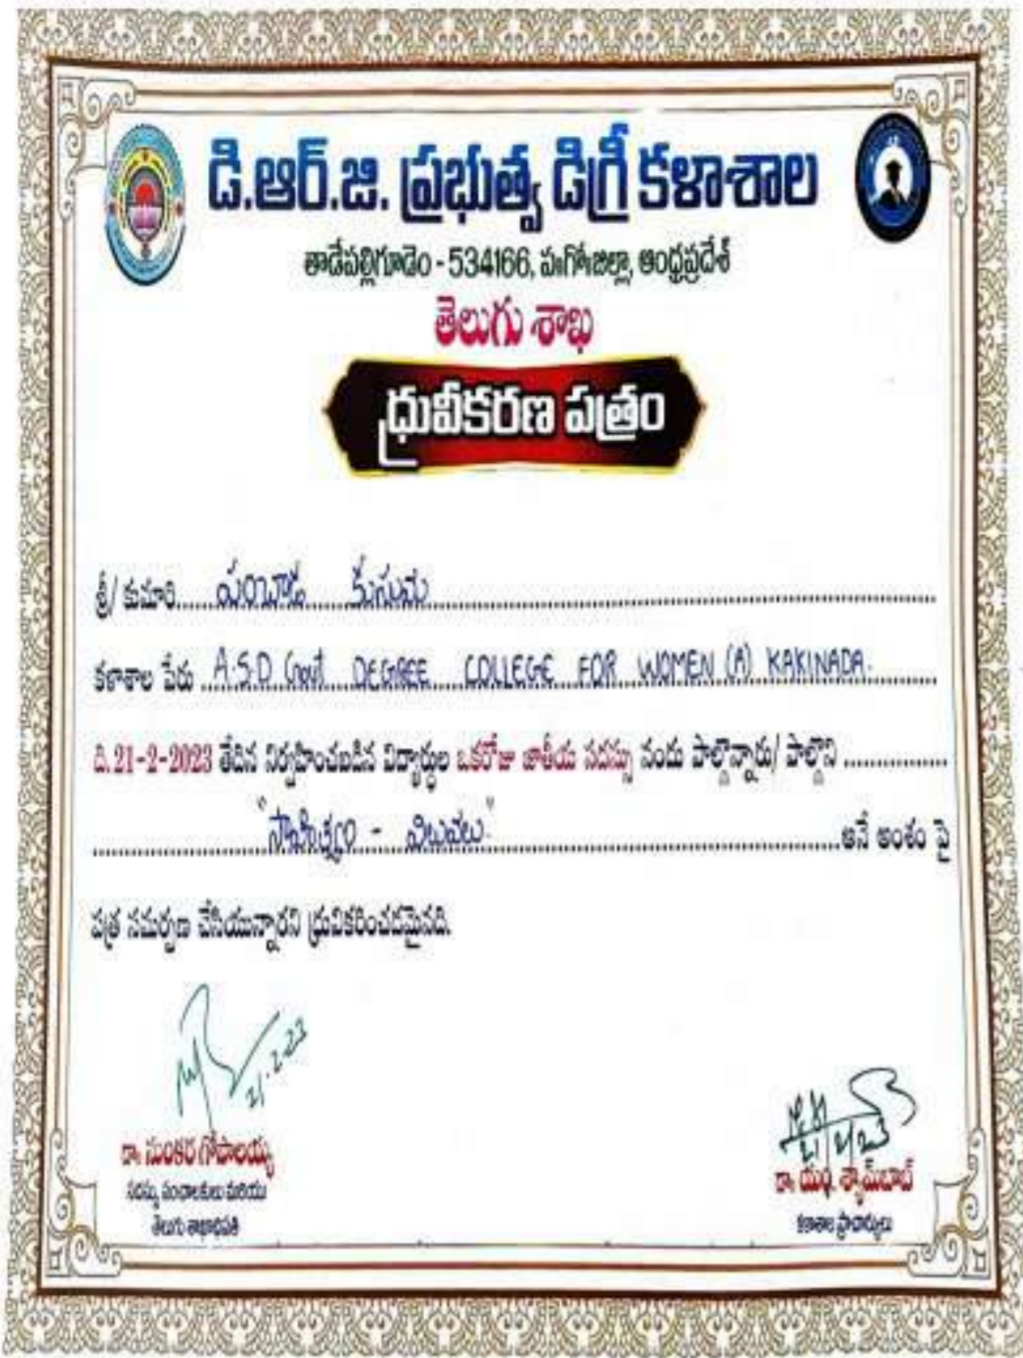 డి.ఆర్.జి. ప్రభుత్వ డిగ్రీ కళాశాల
తాడేపల్లిగూడెం - 534166, ప॥గో॥జిల్లా, ఆంధ్రప్రదేశ్
తెలుగు శాఖ
ధ్రువీకరణ పత్రం
శ్రీ/ కుమారి..... పంచాడ కుసుమ
కళాశాల పేరు A.S.D Govt DEGREE COLLEGE FOR WOMEN (A) KAKINADA.
ది.21-2-2023 తేదిన నిర్వహించబడిన విద్యార్థుల ఒకరోజు జాతీయ సదస్సు నందు పాల్గొన్నారు/ పాల్గొని ...............
"సాహిత్యం - విలువలు" అనే అంశం పై
పత్ర సమర్పణ చేసియున్నారని ధ్రువీకరించడమైనది.
21.2.23
21/2/23
డా॥ సుంకర గోపాలయ్య
సదస్సు సంచాలకులు మరియు
తెలుగు శాఖాధిపతి
డా॥ యం. శ్యామ్‌బాబ్
కళాశాల ప్రాచార్యులు